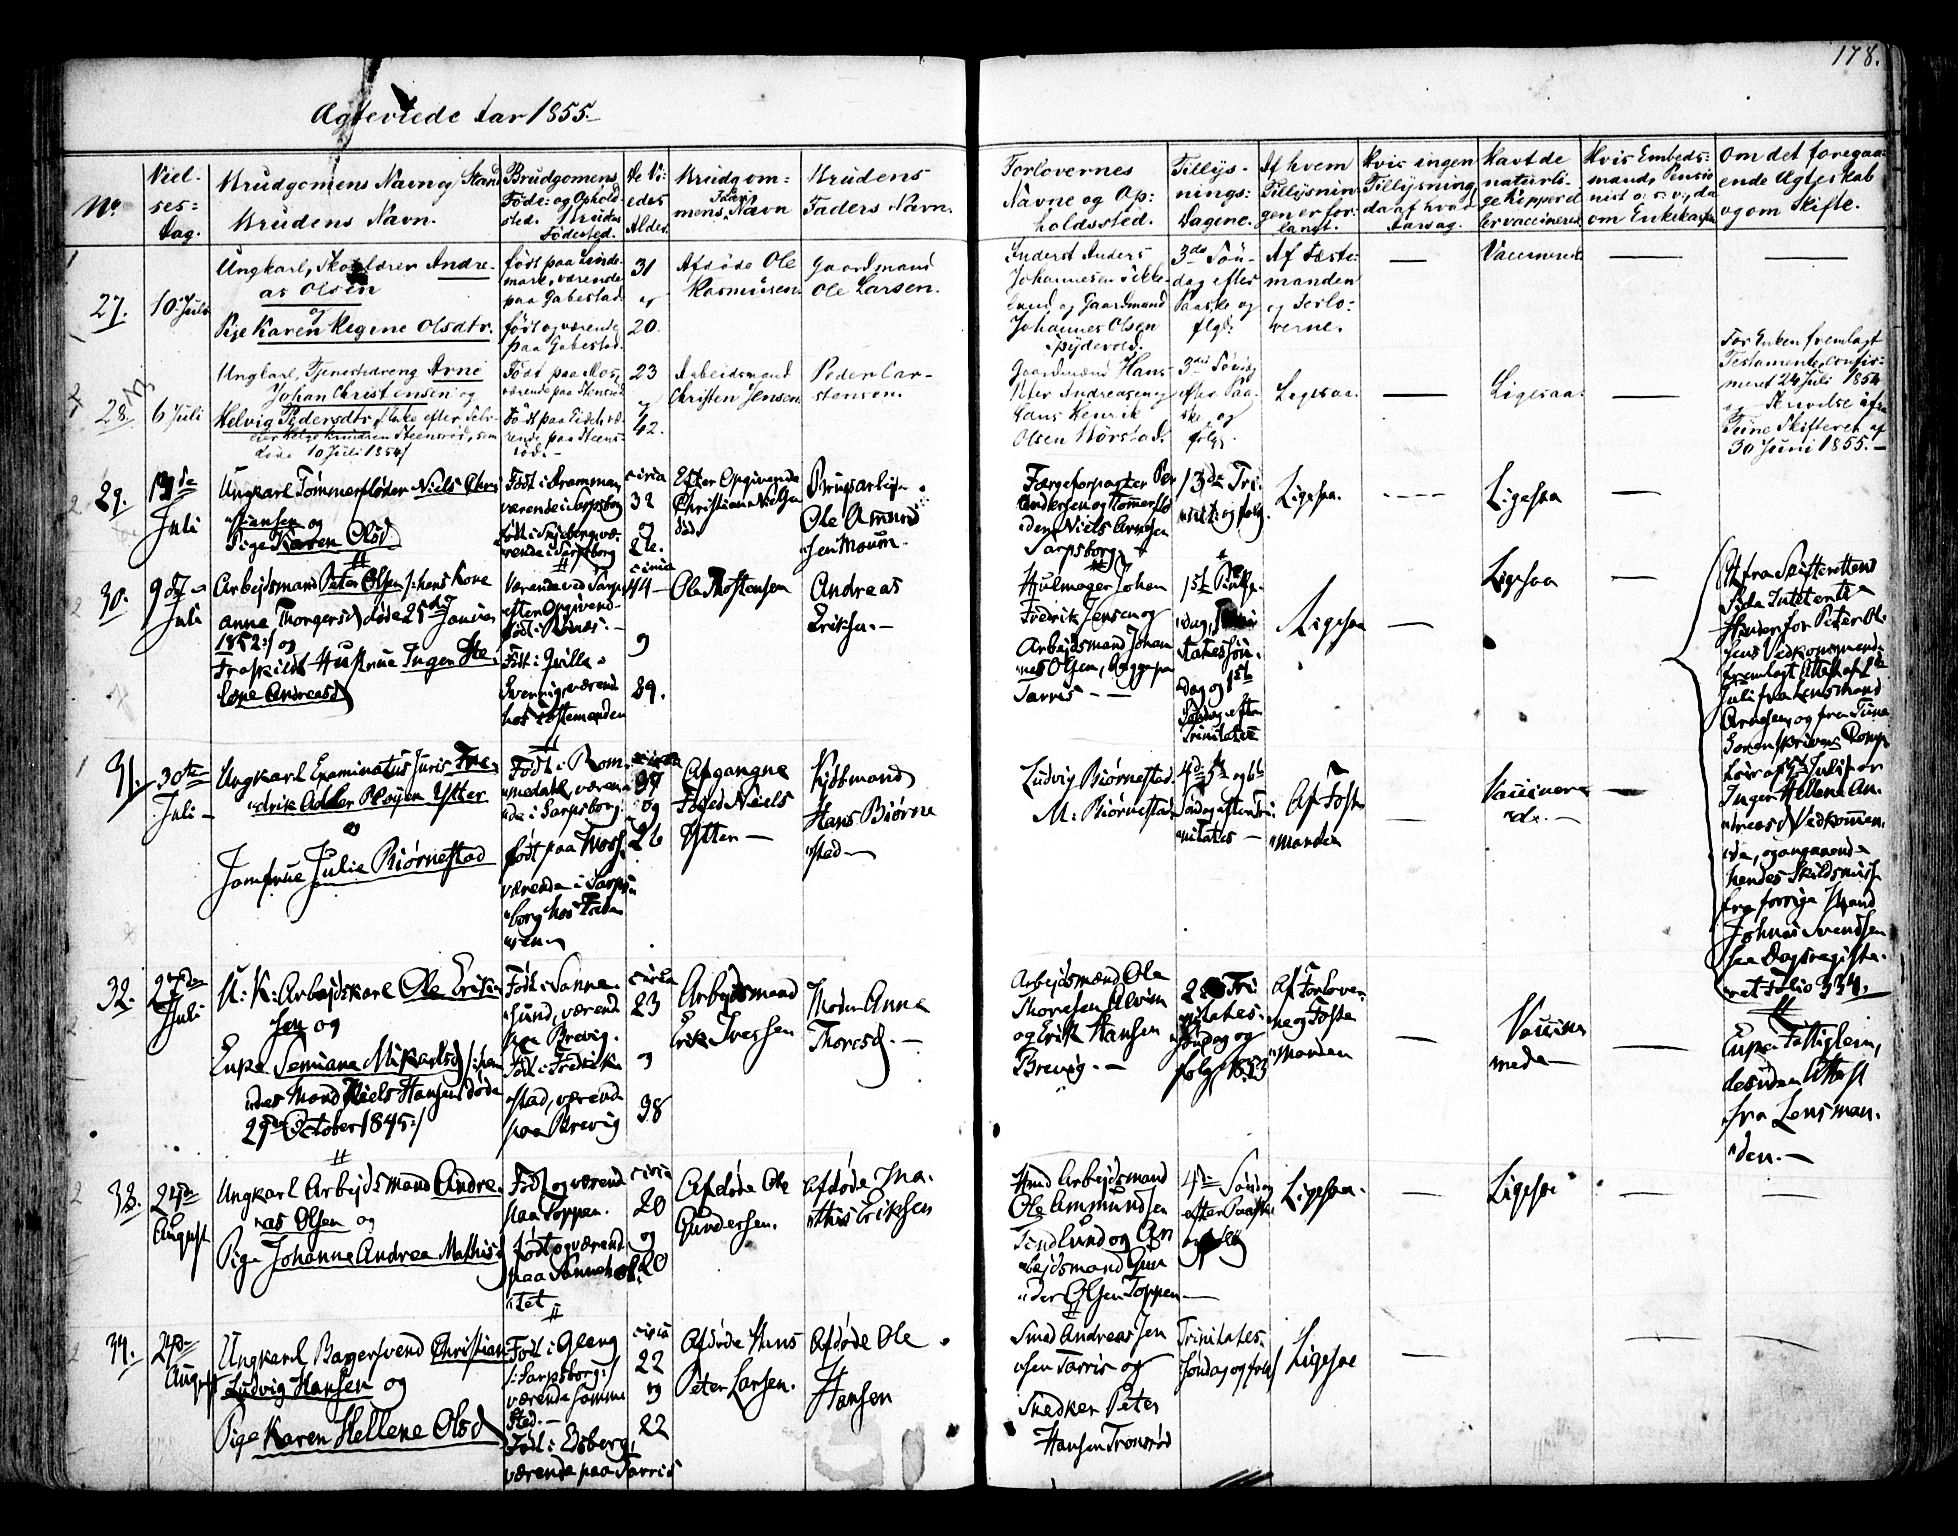 178.
Ægteviede Aar 1855.
No.
Viel-
ses-
Dag.
Brudgomens Navn og Stand
Brudens Navn.
Brudgomens
Føde- og Opholds
sted. Brudens
Fødested.
De Vi-
edes
Alder.
Brudgom-
mens Faders Navn
Brudens
Faders Navn.
Forlovernes
Navne og Op-
holdssted.
Tillys-
nings-
Dagene.
Af hvem
Tillysnin-
gen er for-
langt.
Hvis ingen
Tillysning,
da af hvad
Aarsag.
Havt de
naturli-
ge Kopper el-
ler vaccinered
Hvis Embeds-
mand, Pensio
nist o. s. v., da
om Enkekassen
Om det foregaa-
ende Ægteskab
og om Skifte.
27.
10 Juli
Ungkarl, Skolelærer Andre-
as Olsen
og
Pige Karen Regine Olsdtr.
født paa Linde-
mark, værende
paa Gabestad
født og værende
paa Gabestad.
31
og
20.
Afdøde Ole
Rasmussen.
Gaardmand
Ole Larsen.
Anders
Johannesen
og Gaardmand
Johannes Olsen
Spydevold.
3de Søn-
dag efter
Paaske og
flgd.
Af Fæste-
manden
og Forlo-
verne.
—
Vaccinered
—
—
28.
6 Juli
Ungkarl, Tjenestedreng Arne
Johan Christensen og
Helvig Pedersdtr, Enke efter
Steensrød, som
døde 10 Juli 1854/
Født paa Mos,
værende paa Steensrød
værende paa Steens-
rød.
23
og
42.
Arbeidsmand
Christen Jensen
Peder Car-
stensen.
Gaardmænd Hans
Peter Andreasen og
Hans Henrik
Olsen Hørstad.
3die Søndag
efter Paa-
ske og
følg.
Ligesaa.
—
Ligesaa.
—
For Enken fremlagt
Testamente, confir-
meret 24 Juli 1854
og Skrivelse fra
Tune Skifteret af
30 Juni 1855.—
29.
13de
Juli
Ungkarl Tømmerfløder Niels Chri
stiansen og
Pige Karen Olsd
Født i Drammen,
værende i Sarpsborg
Født i Skjeberg, væ-
rende i Sarpsborg
circa
32
og
26.
Efter Opgivende
Christian Nielsen
død.
Brugsarbeid-
Ole Amund
sen Moum.
Færgeforpagter Per
Andersen og Tømerflø
deren Niels Arnesen
Sarpsborg.
3de Tri
nit: og følg.
Ligesaa.
----
Ligesaa
—
30.
9de
Juli
Arbejdsmand Peter Olsen /: hans Kone
Anna Thorgersd døde 25de Januar
1852:/ og
Fraskildt Hustrue Inger Hel
lene Andreasd
Værende ved Sarps
efter Opgivend
født i
Født i Qville
Sverrig, værend
hos Fæstemanden
circa
44
og
39.
Ole Thostensen
Andreas
Eriksen.—
Hjulmager Johan
Fredrik Jensen og
Arbejdsmand Johan
nes Olsen, begge paa
Tarris.—
1ste Pintse-
dag, Trini
tatis Søn
dag og 1ste
Søndag efter
Trinitatis
Ligesaa
—
Ligesaa
—
At fra Skifterettens
Side Intet er til
Hinder for Peter Ol-
sens Vedkommende
fremlagt Attest af 2de
Juli fra Lensmand
Arnesen, og fra Tune
Sorenskriver
af 5te Juli for
Inger Hellene An-
dreasd Vedkommen-
de, og angaaende
hendes Skildsmiss
fra forrige Mand
Johnas Svendsen
saa Dagsregiste-
ret Folio 334.
31.
30te
Juli
Ungkarl Examinatus Juris Fre-
drik Adler Pløyen Ytter
og
Jomfrue Julie Biørnestad
Født i Rom-
medal, væren
de i Sarpsborg.
født paa Moss,
værende i Sarps
borg hos Fæde
circa
37
og
26
Afgangne
Foged Niels
Ytter —
Kjøbmand
Hans Biørne
stad —
Ludvig Biørnestad
M: Biørnestad
4de 5te og 6te
Søndag efter Tri-
nitatis —
Af Fæste
manden
—
Vaccinere
de. —
—
32.
27de
Juli
U: K: Arbejdskarl Ole Erik
sen og
Enke Semiane Mikaelsd /: hen
des Mand Niels Hansen døde
29de October 1845:/
Født i Sanne
sund, værend
paa Brevig.
Født i Fredrik
stad, værend
paa Brevig
circa
23
og
38
Arbejdsmand
Erik Iversen
Moder Anne
Thoresd.—
Arbejdsmænd Ole
Thoresen Alvim
og Erik Hansen
Brevig.—
2 Tri
nitatis-
Søndag og
følg
Af Forlover
ne og Fæste
manden
—
Vaccine
rede —
—
Enken Fattiglem,
desuden Attest
fra Lensman-
den.—
33.
24de
August
Ungkarl Arbejdsmand Andre
as Olsen og
Pige Johanne Andrea Mathisd
Født og værend
paa Toppen.
født og værend
paa Sanneh
circa
20
og
20
Afdøde Ole
Gundersen.
Afdøde Ma-
this Eriksen
Arbejdsmand
Ole Ammundsen
Tindlund og Ar
bejdsmand Gun
der Olsen Toppen —
4de Søndag
efter Paaske
og
Ligesaa.
—
Ligesaa
—
—
34.
24de
August
Ungkarl Bagersvend Christian
Ludvig Hansen og
Pige Karen Hellene Olsd
Født i Gleng
/: Sarpsborg:/
værende samme
Sted.—
Født i Edsberg,
værende paa Tarris
circa
22
og
22
Afdøde Hans
Peter Larsen.
Afdøde Ole
Hansen
Smed Andreas Jen
sen Tarris og
Snedker Peter
Hansen Tronsrød
Trinitates-
Søndag og følg
Ligesaa
—
—
—